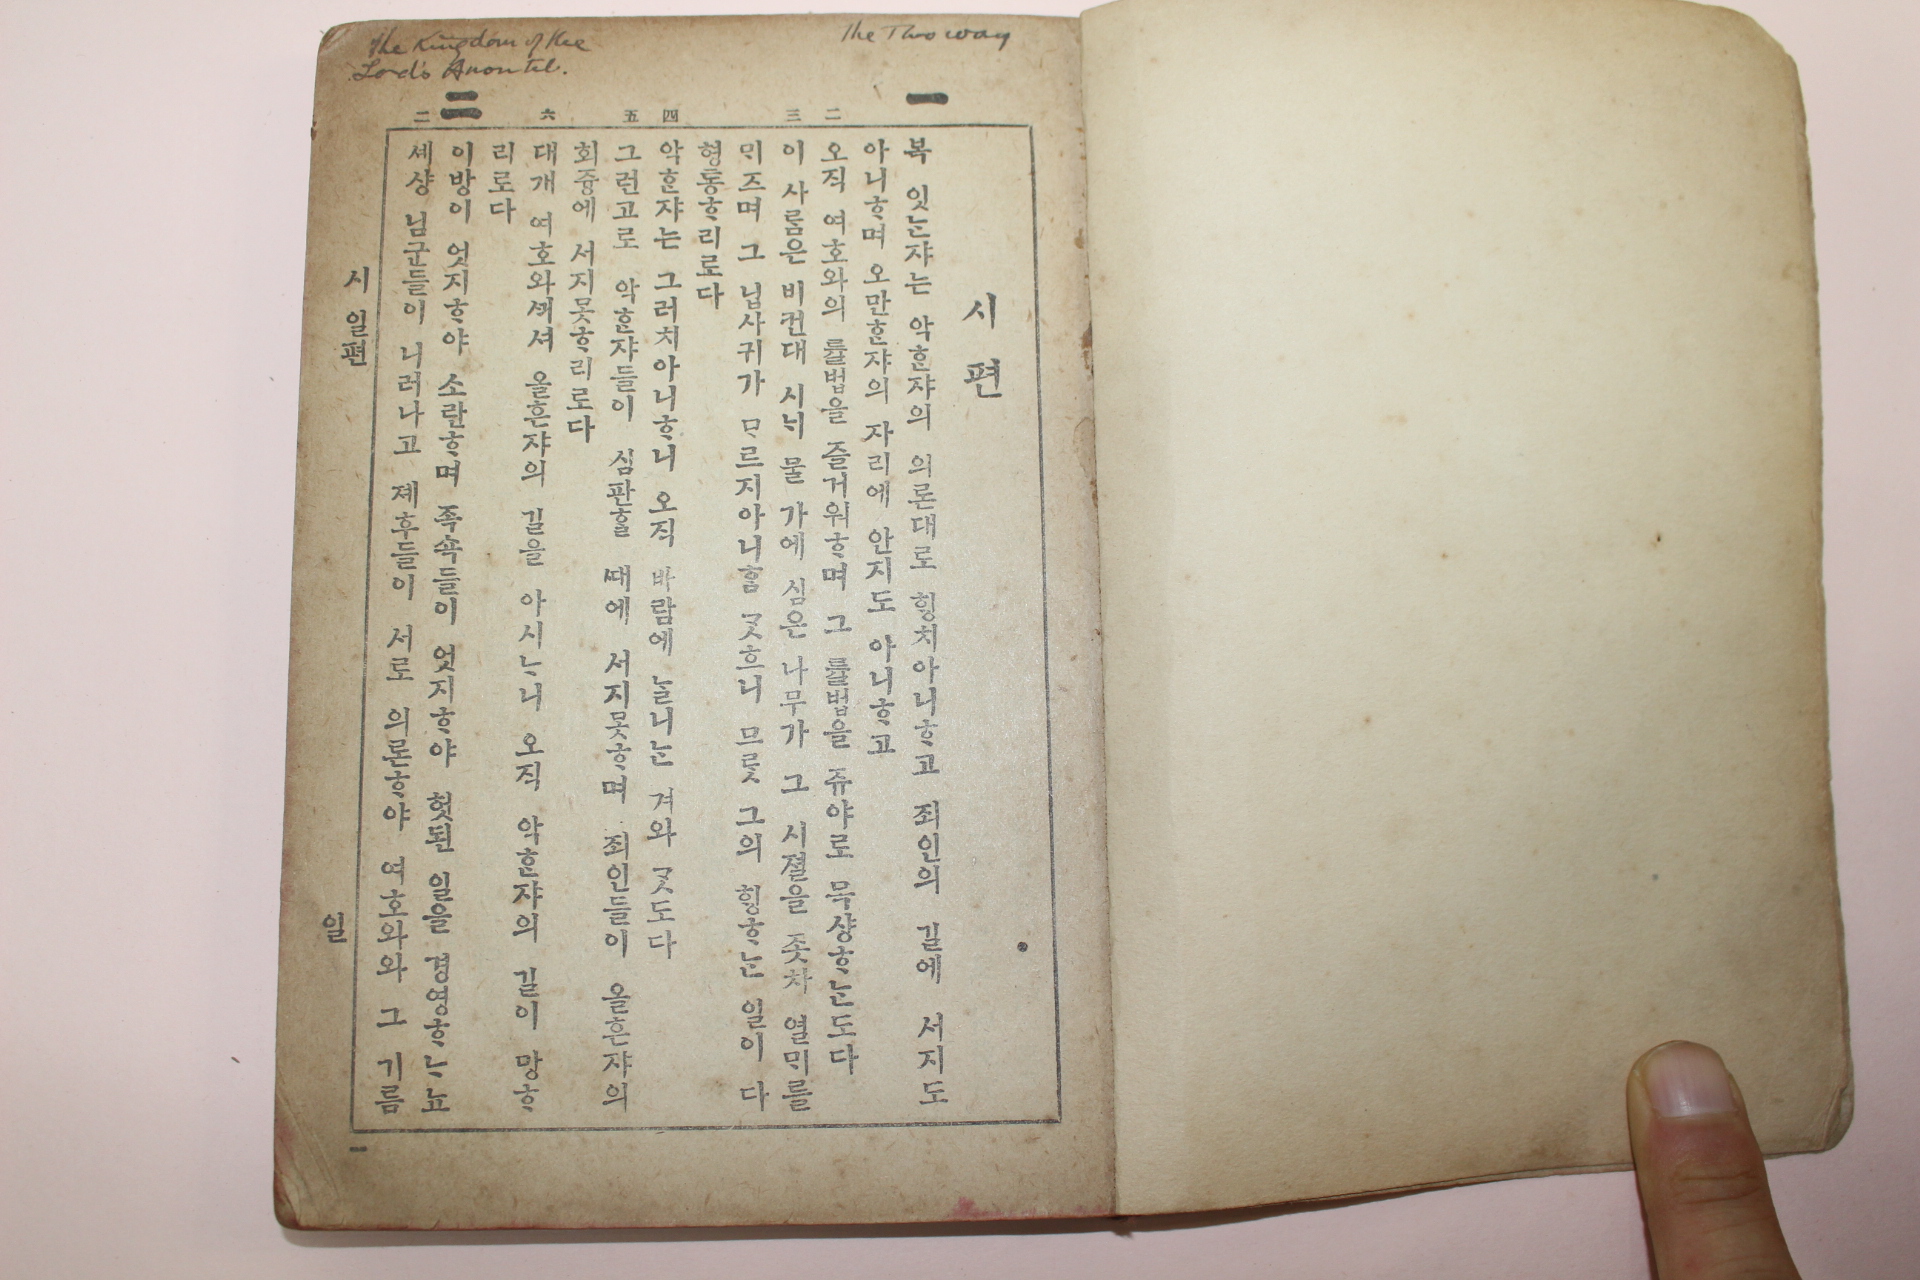 The Two way
The Kingdom of the
Lord's
시편
一
복 잇ᄂᆞᆫ쟈는 악ᄒᆞᆫ쟈의 의론대로 ᄒᆡᆼ치아니ᄒᆞ고 죄인의 길에 서지도
아니ᄒᆞ며 오만ᄒᆞᆫ쟈의 자리에 안지도 아니ᄒᆞ고
二
오직 여호와의 률법을 즐거워ᄒᆞ며 그 률법을 쥬야로 묵샹ᄒᆞᄂᆞᆫ도다
三
이 사ᄅᆞᆷ은 비컨대 시ᄂᆡ 물 가에 심은 나무가 그 시졀을 좃차 열ᄆᆡ를
ᄆᆡ즈며 그 닙사귀가 ᄆᆞ르지아니ᄒᆞᆷ ᄀᆞᆺ흐니 므릇 그의 ᄒᆡᆼᄒᆞᄂᆞᆫ 일이 다
형통ᄒᆞ리로다
四
악ᄒᆞᆫ쟈는 그러치아니ᄒᆞ니 오직 바람에 ᄂᆞᆯ니ᄂᆞᆫ 겨와 ᄀᆞᆺ도다
五
그런고로 악ᄒᆞᆫ쟈들이 심판ᄒᆞᆯ 때에 서지못ᄒᆞ며 죄인들이 올흔쟈의
회즁에 서지못ᄒᆞ리로다
六
대개 여호와ᄭᅴ셔 올흔쟈의 길을 아시ᄂᆞ니 오직 악ᄒᆞᆫ쟈의 길이 망ᄒᆞ
리로다
二
이방이 엇지ᄒᆞ야 소란ᄒᆞ며 족쇽들이 엇지ᄒᆞ야 헛된 일을 경영ᄒᆞᄂᆞ뇨
二
셰샹 님군들이 니러나고 졔후들이 서로 의론ᄒᆞ야 여호와와 그 기름
시 일편
일
一